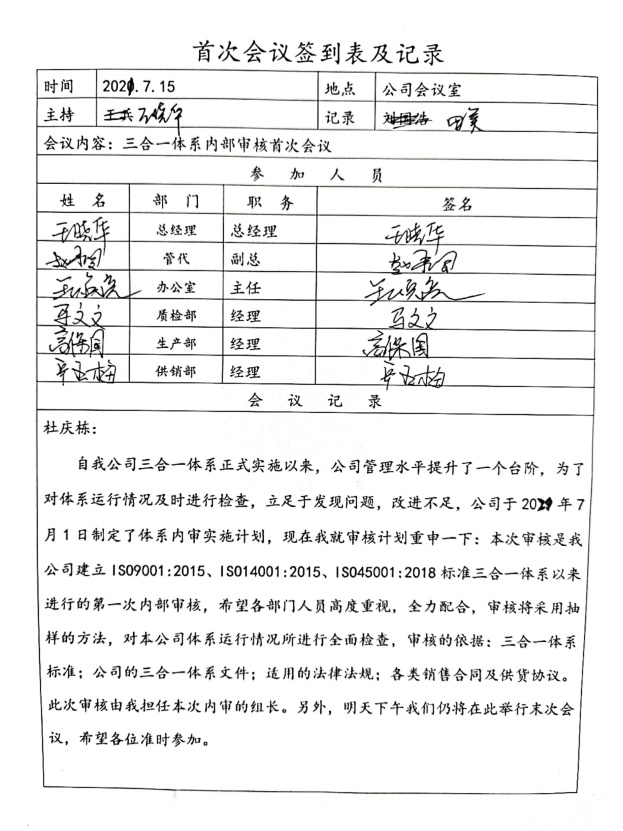 首次会议签到表及记录
时间 2021.7.15 地点 公司会议室
主持 王晓华 记录
会议内容：三合一体系内部审核首次会议
参 加 人 员
姓 名 部 门 职 务 签名
王晓华 总经理 总经理 王晓华
管代 副总
办公室 主任
马文文 质检部 经理 马文文
高保国 生产部 经理 高保国
供销部 经理
会 议 记 录
杜庆栋：
自我公司三合一体系正式实施以来，公司管理水平提升了一个台阶，为了
对体系运行情况及时进行检查，立足于发现问题，改进不足，公司于 2021 年 7
月 1 日制定了体系内审实施计划，现在我就审核计划重申一下：本次审核是我
公司建立 ISO9001:2015、ISO14001:2015、ISO45001:2018 标准三合一体系以来
进行的第一次内部审核，希望各部门人员高度重视，全力配合，审核将采用抽
样的方法，对本公司体系运行情况所进行全面检查，审核的依据：三合一体系
标准；公司的三合一体系文件；适用的法律法规；各类销售合同及供货协议。
此次审核由我担任本次内审的组长。另外，明天下午我们仍将在此举行末次会
议，希望各位准时参加。